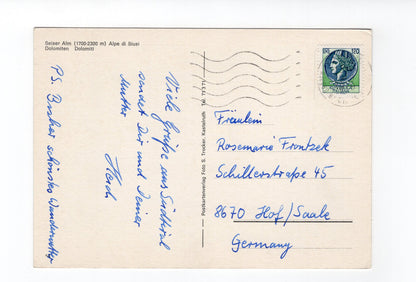 Seiser Alm (1700-2300 m) Alpe di Siusi
Dolomiten Dolomiti
Viele Grüße aus Südtirol
sendet Dir und Deiner
Mutter
PS. Bisher schönstes Wanderwetter
Postkartenverlag Foto S. Trocker, Kastelruth Tel. 71371
120
Fräulein
Rosemarie Frontzek
Schillerstraße 45
8670 Hof/Saale
Germany